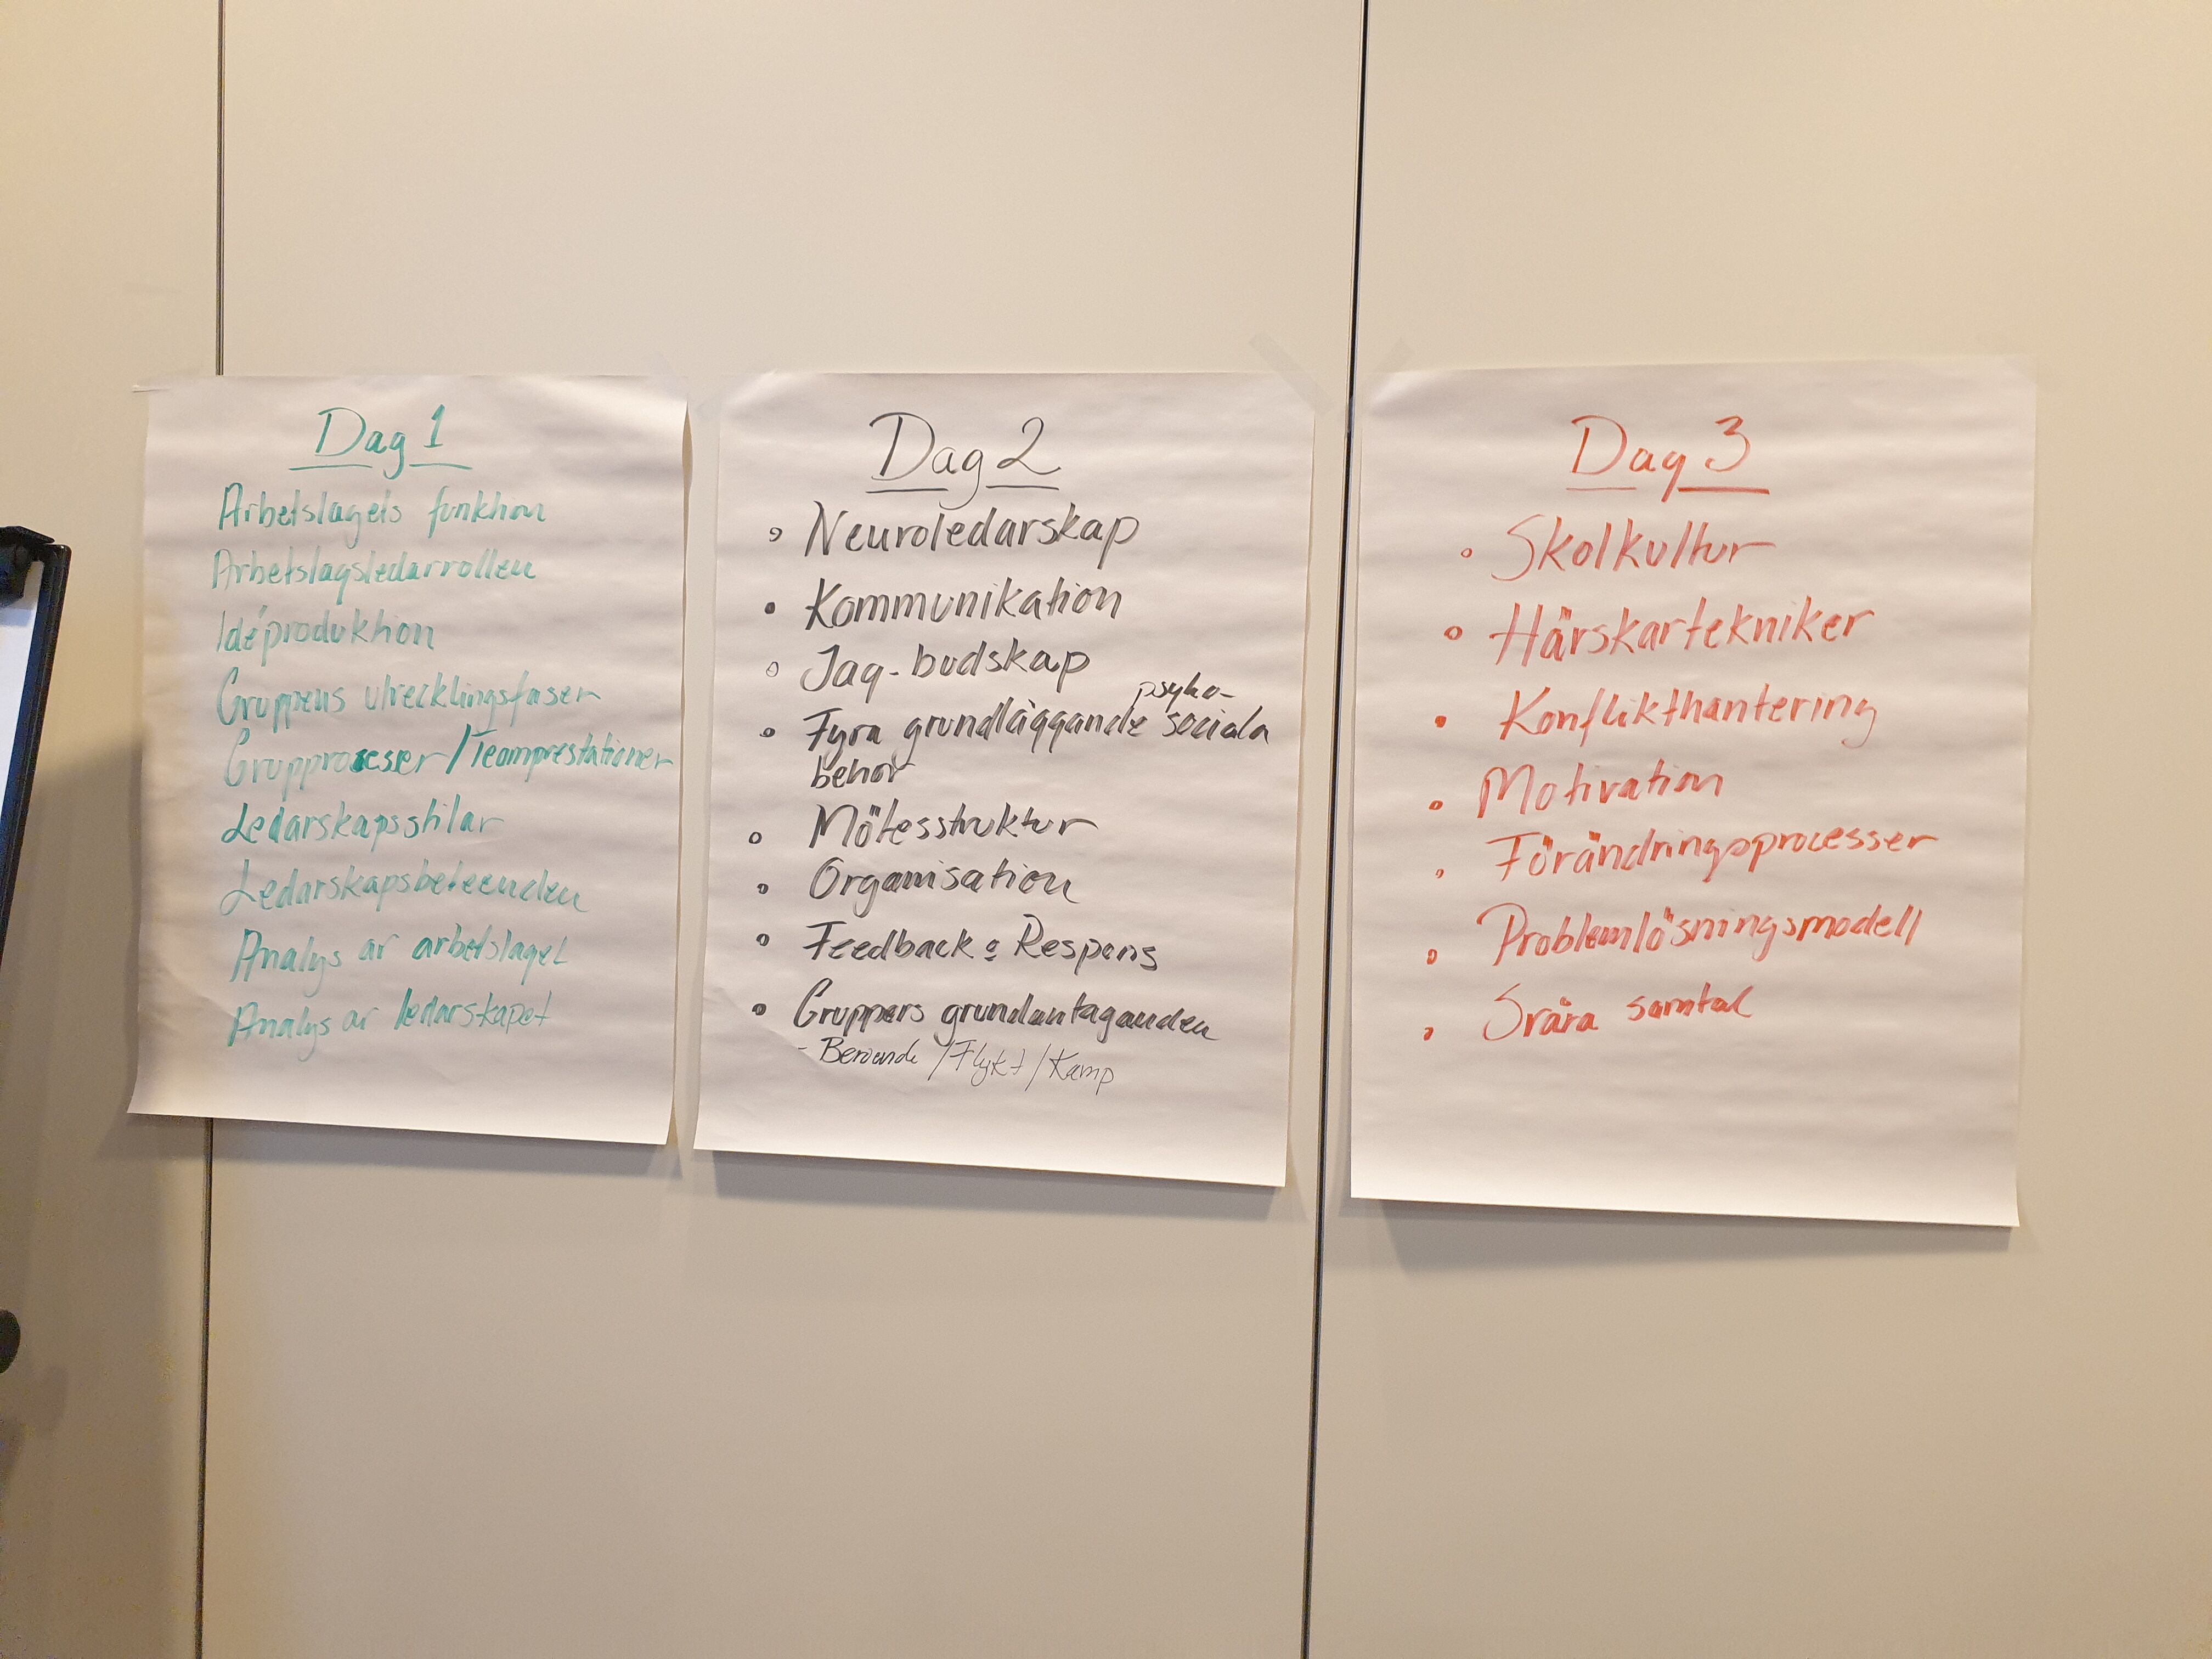 Dag 1
Arbetslagets funktion
Arbetslagsledarrollen
Idéproduktion
Gruppens utvecklingsfaser
Grupprocesser/Teamprestationer
Ledarskapsstilar
Ledarskapsbeteenden
Analys av arbetslaget
Analys av ledarskapet
Dag 2
Neuroledarskap
Kommunikation
Jag-budskap
psyko-
Fyra grundläggande sociala
behov
Mötesstruktur
Organisation
Feedback o Respons
Gruppers grundantaganden
- Beroende /Flykt/Kamp
Dag 3
Skolkultur
Härskartekniker
Konflikthantering
Motivation
Förändringsprocesser
Problemlösningsmodell
Svåra samtal